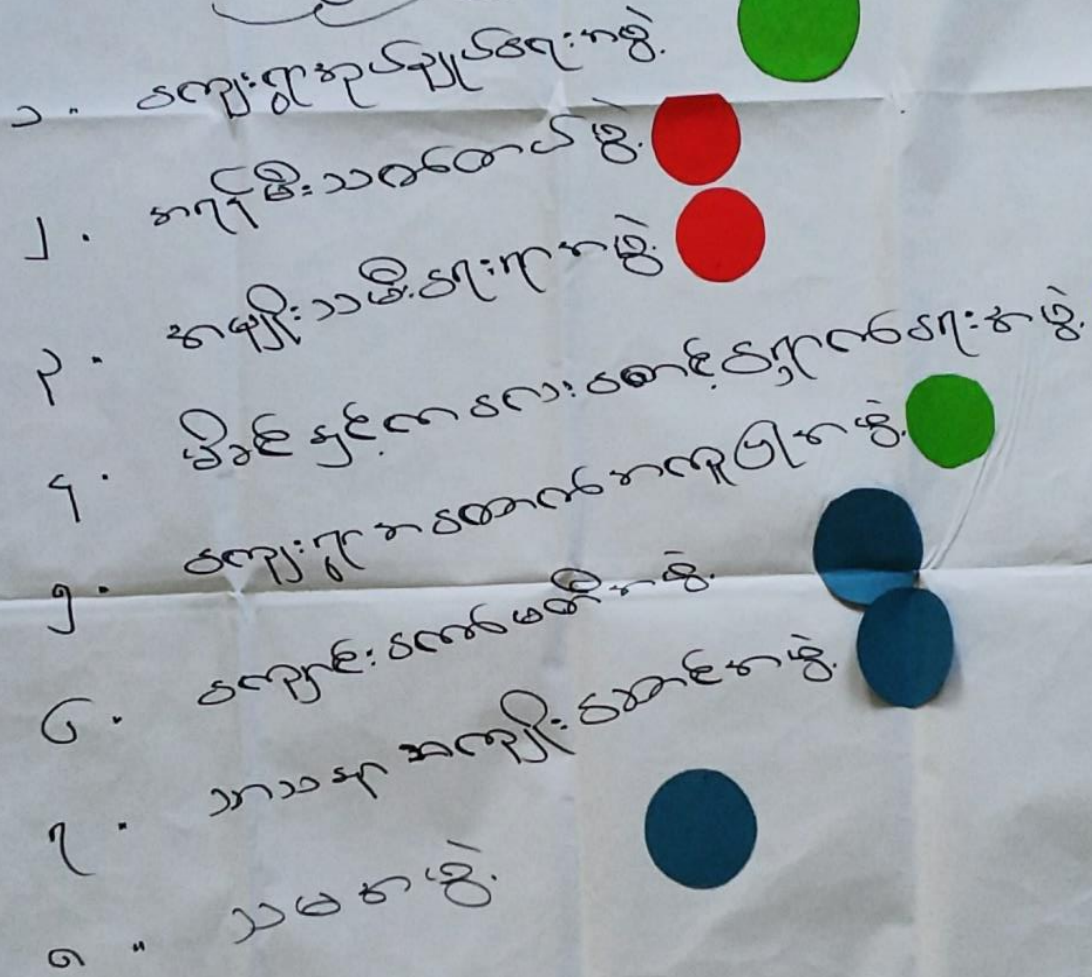 ၁။ ကျေးရွာအုပ်ချုပ်ရေးအဖွဲ့
၂. အရန်မီးသတ်တပ်ဖွဲ့
၃. အမျိုးသမီးရေးရာအဖွဲ့
၄. မိခင်နှင့်ကလေးစောင့်ရှောက်ရေးအဖွဲ့
၅. ကျေးရွာအထောက်အကူပြုအဖွဲ့
၆. ကျောင်းကော်မတီအဖွဲ့
၇. ဘာသာရေးအကျိုးဆောင်အဖွဲ့
၈။ သမအဖွဲ့